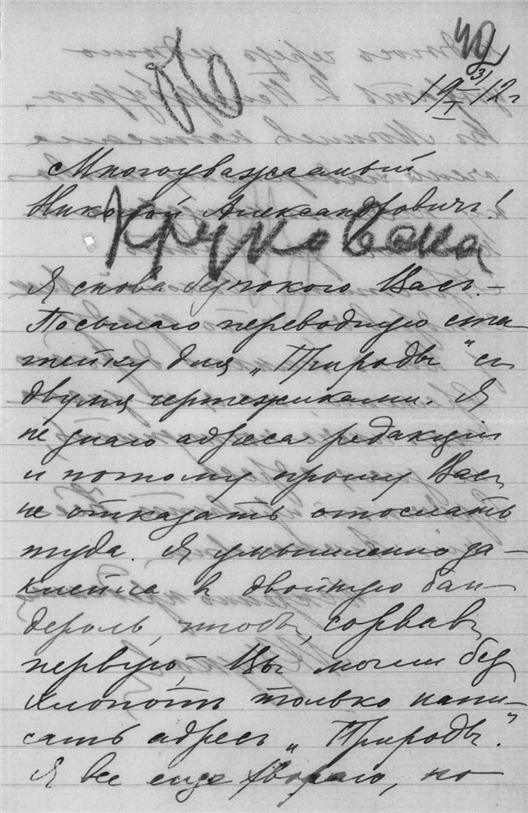 42
19 3/I 12 г
Многоуважаемый
Николай Александровичъ!
Круковская
Я снова безпокою Васъ.–
Посылаю переводную ста-
тейку для „Природы" съ
двумя чертежиками. Я
не знаю адреса редакціи
и потому прошу Васъ
не отказать отослать
туда. Я умышленно за-
клеила въ двойную бан-
дероль, чтобы, сорвавъ
первую, – Вы могли безъ
хлопотъ только напи-
сать адресъ „Природы".
Я все еще хвораю, но